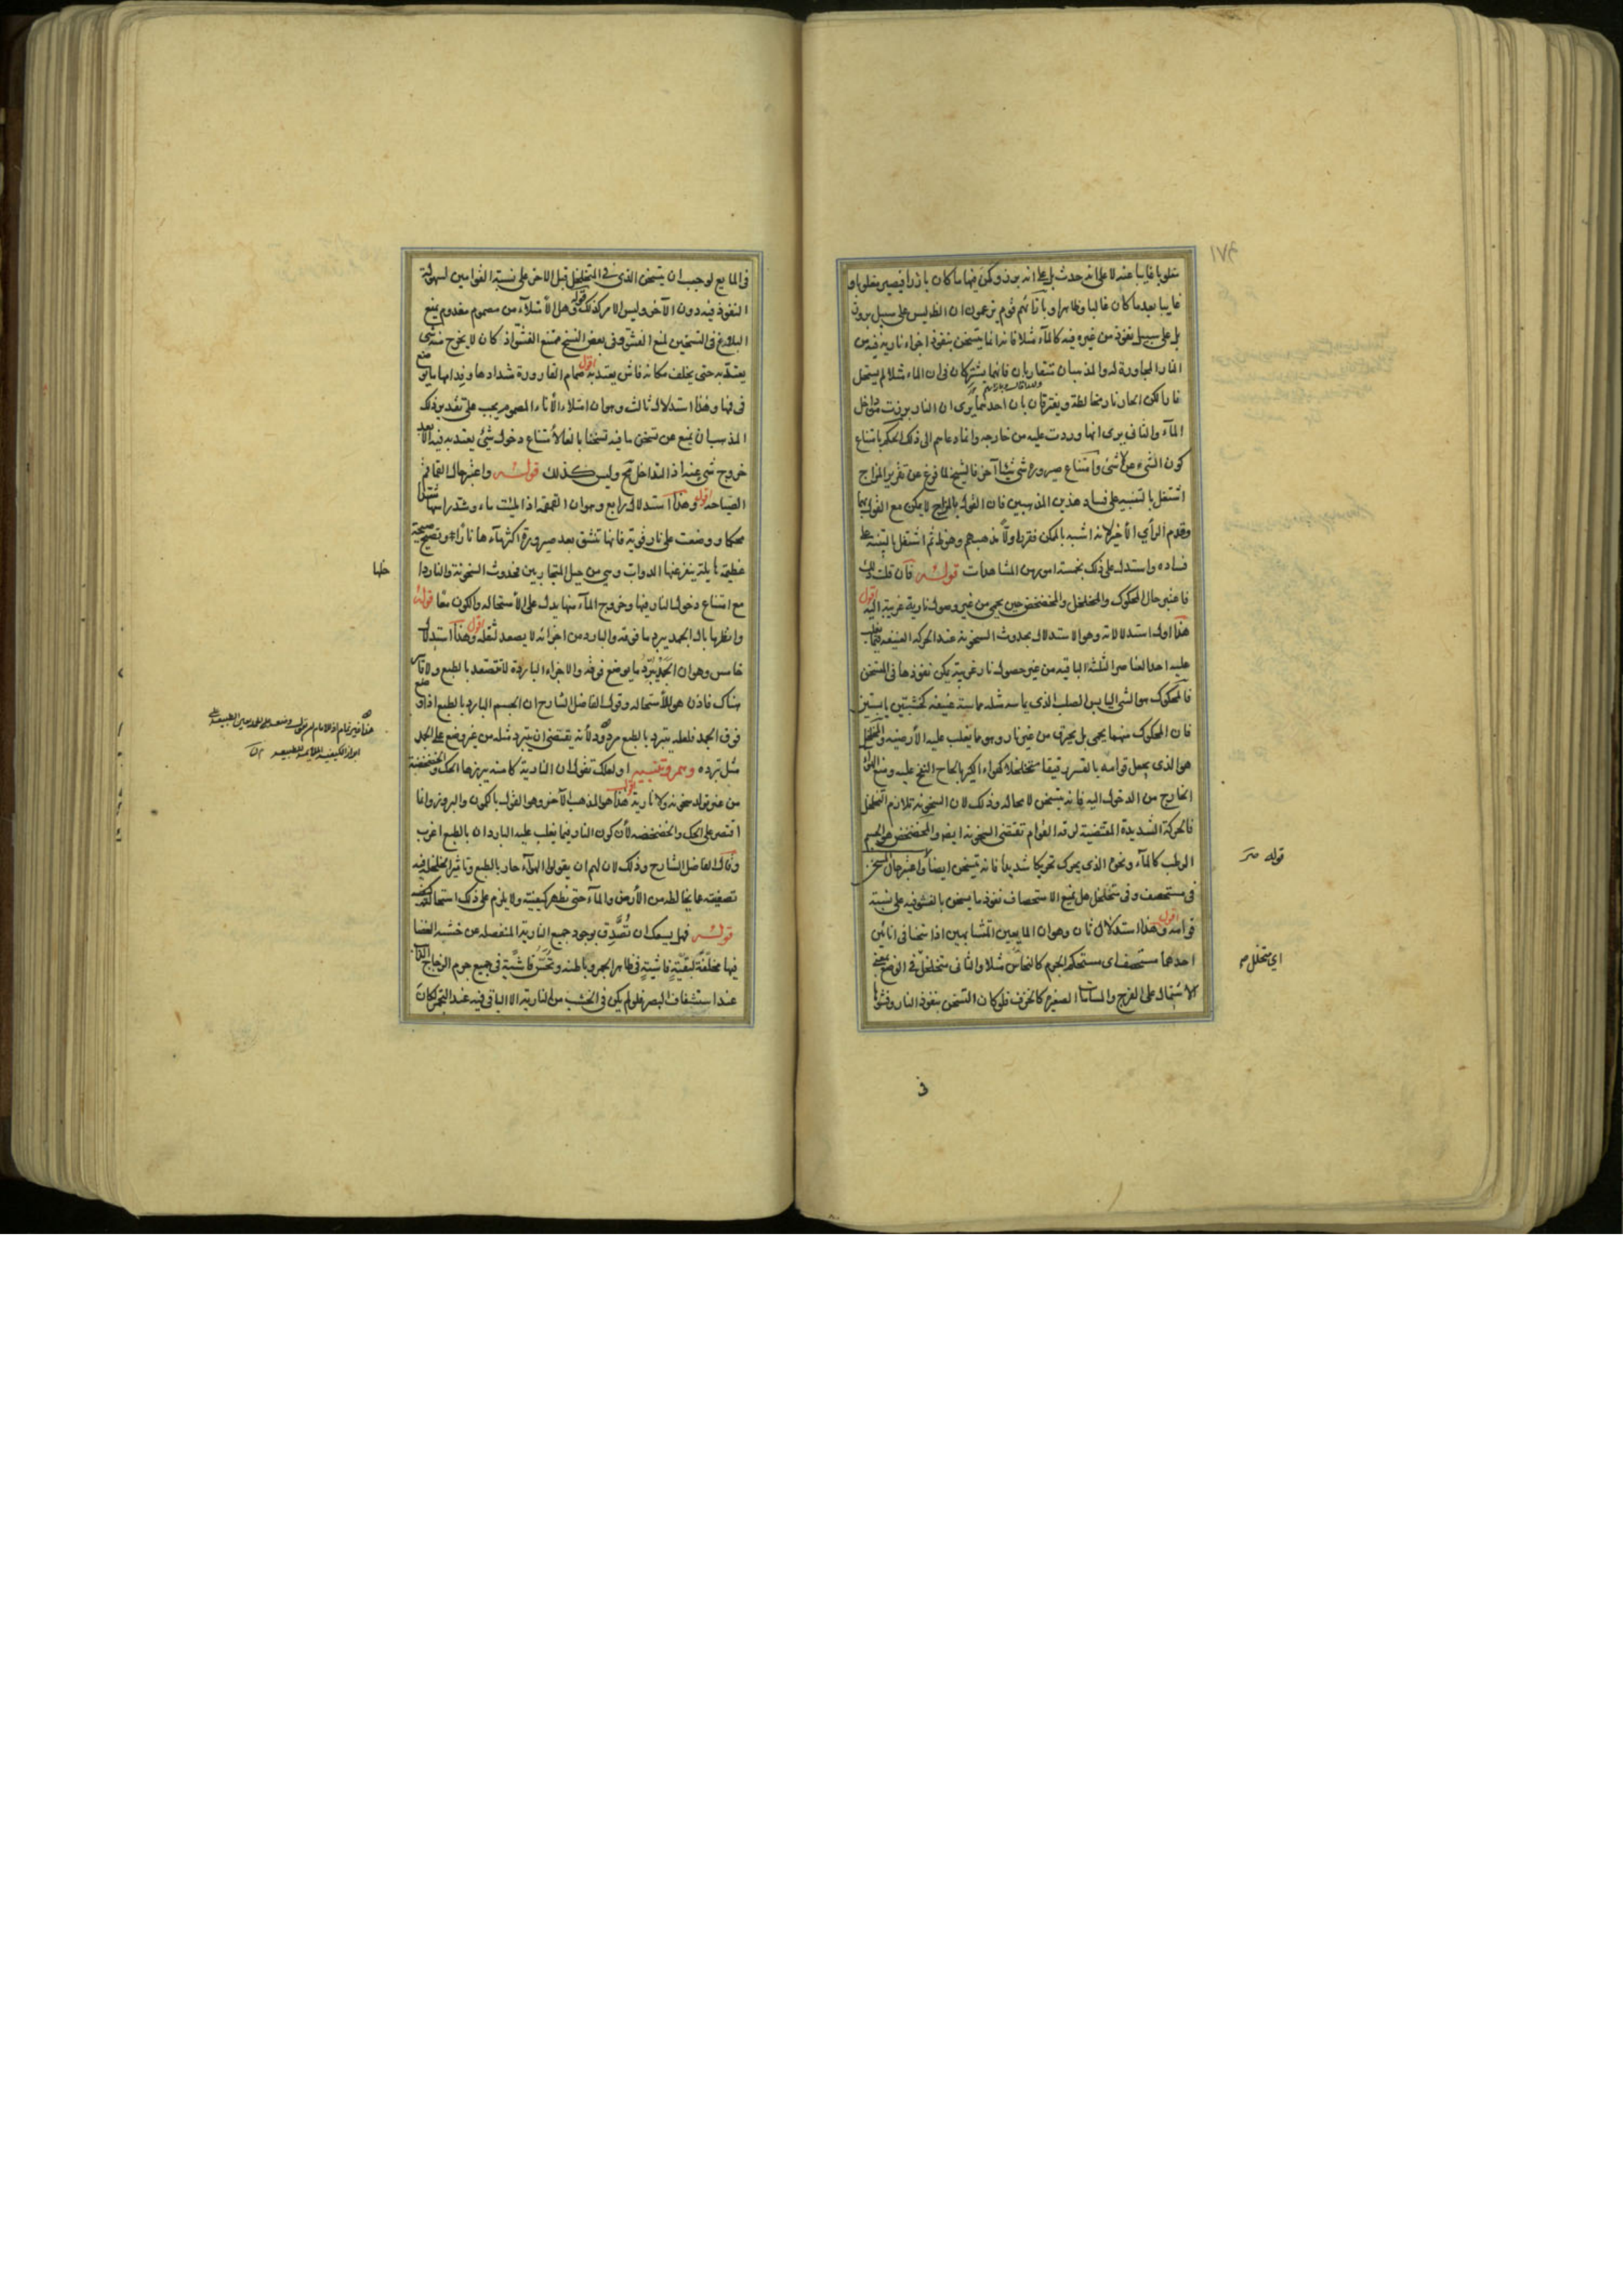 مغلوبا غايبا عنه لا على انه حدث بل على انه برز وكمن فيها ما كان بارزا فيصير مغلوبا و
غايبا بعد ما كان غالبا وظاهرا وبازائهم قوم يزعمون ان الظ ليس على سبيل بروز
بل على سبيل نفوذ من غيره فيه كالمآء مثلا فانه انما يتسخن بنفوذ اجزاء نارية فيه من
النار المجاورة له والمذهبان متقاربان فانهما يشتركان فى ان الماء مثلا لم يستحل
حارا لكن الحار نار يخالطه ويفترقان بان احدهما يرى ان النار برزت من داخل
المآء والثانى يرى انها وردت عليه من خارجه وانما دعاهم الى ذلك الحكم بامتناع
كون الشىء عن لاشئ وامتناع صيرورة شئ شيئا آخر فالشيخ لما فرغ عن تقرير المزاج
اشتغل بالتنبيه على فساد هذين المذهبين فان القول بالمزاج لا يمكن مع القول بهما
وقدم الرأى الأخير لانه اشبه بالممكن فقرر اولا مذهبهم وهو ظ ثم اشتغل بالتنبيه على
فساده واستدل على ذلك بخمسة امور من المشاهدات قوله فان قلت ذلك
فاعتبر حال المحكوك والمخلخل والمخضخض حين يحمى من غير وصول نارية غريبة اليه اقول
هذا اول استدلالاته وهو الاستدلال بحدوث السخونة عند الحركة العنيفة فيما يغلب
عليه احد العناصر الثلثة الباقية من غير حصول نار غريبة يمكن نفوذها فى المتسخن
فالمحكوك هو الشئ اليابس الصلب الذى يماسه مثله مماسة عنيفة كخشبتين يابستين
فان المحكوك منهما يحمى بل يحترق من غير نار وهو ما يغلب عليه الأرضية والمخلخل
هو الذى يجعل قوامه بالقسر رقيقا متخلخلا كهواء الكير بالحاح النفخ عليه ومنع الهواء
الخارج من الدخول اليه فانه يتسخن لا محالة وذلك لان السخونة تلازم التخلخل
فالحركة الشديدة المقتضية لرقة القوام تقتضى السخونة ايض والمخضخض هو الجسم
الرطب كالمآء ونحوه الذى يحرك تحريكا شديدا فانه يتسخن ايضا واعتبر حال المتسخن
فى مستحصف وفى متخلخل هل يمنع الاستحصاف نفوذ ما يسخن بالفشو فيه على نسبة
قوامه اقول وهذا استدلال ثان وهو ان المايعين المتشابهين اذا سخنا فى انائين
احدهما مستحصف اى مستحكم الجرم كالنحاس مثلا والثانى متخلخل فى الوضع بمعنى
الاشتمال على الفرج والمسامات الصغيرة كالخزف فلو كان التسخن بنفوذ النار وفشوها
قوله مر
اى متخلل م
فى المايع لوجب ان يتسخن الذى فى المتخلخل قبل الاخر على نسبة القوامين لسهولة
النفوذ فيه دون الآخر وليس الامر كذلك قوله وهل الأمتلآء من مصموم مفدوم يمنع
البلاغ فى التسخين لمنع الفشو وفى بعض النسخ ممتنع الفشو اذ كان لا يخرج منه شئ
يعتد به حتى يخلف مكانه فاش يعتد به اقول صمام القارورة شدادها وفدامها ما يوضع
فى فمها وهذا استدلال ثالث وهو ان امتلاء الأناء المصموم يجب على تقدير ذلك
المذهب ان يمنع عن تسخن ما فيه تسخنا بالغا لأمتناع دخول شئ يعتد به فيه الا بعد
خروج شئ عنه اذ التداخل مح وليس كذلك قوله واعتبر حال القماقم
الصياحة اقول وهذا استدلال رابع وهو ان القمقمة اذا ملئت ماء وشد رأسها شدا
محكما ووضعت على نار قوية فانها تنشق بعد صيرورة اكثر مآءها نارا وتصيح صيحة
عظيمة هايلة ينفر عنها الدواب وهى من حيل المتحاربين فحدوث السخونة والنار داخلها
مع امتناع دخول النار فيها وخروج المآء منها يدل على الأستحالة والكون معا قوله
وانظر ما بال الجمد يبرد ما فوقه والبارد من اجزائه لا يصعد لثقله اقول وهذا استدلال
خامس وهو ان الجمد يبرد ما يوضع فوقه والاجزاء الباردة لا تتصعد بالطبع ولا قاسر
هناك فاذن هو للأستحالة وقول الفاضل الشارح ان الجسم البارد بالطبع اذا وضع
فوق الجمد فلعله يتبرد بالطبع مردود لأنه يقتضى ان يتبرد مثله من غير وضع على الجمد
مثل تبرده وهم وتنبيه او لعلك تقول ان النارية كامنة يبرزها الحك والخضخضة
من غير تولد سخونة ولا نارية اقول هذا هو المذهب الآخر وهو القول بالكمون والبروز وانما
اقتصر على الحك والخضخضة لأن كون النار فيما يغلب عليه الباردان بالطبع اغرب
وقال الفاضل الشارح وذلك لان لهم ان يقولوا الهوآء حار بالطبع وتاثير الخلخلة فيه
تصفيته عما يخالطه من الأرض والمآء حتى تظهر كيفيته ولا يلزم على ذلك استحالته فى كيفيته
قوله فهل يسعك ان تصدق بوجود جميع النارية المنفصلة عن خشبة الغضا
فيها مخلفة لبقية فاشية فى ظاهر الجمر وباطنه وتحس فاشية فى جميع جرم الزجاج الذائب
عند استشفاف البصر فلو لم يكن فى الخشب من النارية الا الباقى فيه عند التجمر كان
خلها